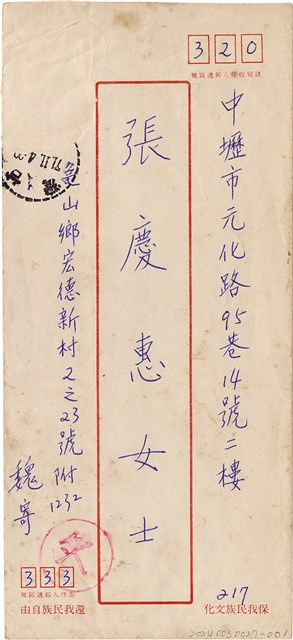 320
請寫收件人郵遞區號
中壢市元化路95巷14號二樓
張慶惠女士
龜山鄉宏德新村2之23號附1232
魏寄
平
333
寄件人郵遞區號
217
保我民族文化
還我民族自由
20240030027-001